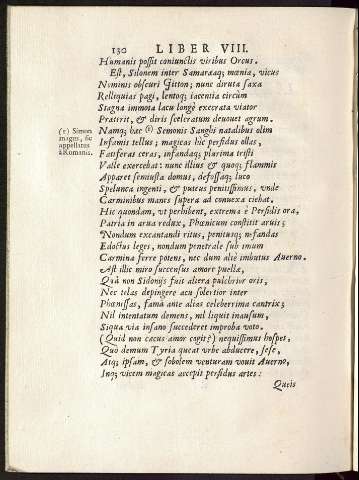 130 LIBER VIII.
Humanis possit coniunctis viribus Orcus.
Est, Sidonem inter Samaraaq; mœnia, vicus
Nominis obscuri Gitton; nunc diruta saxa
Relliquias pagi, lentoq; iacentia circùm
Stagna immota lacu longè execrata viator
Præterit, & diris sceleratum deuouet agrum.
(e) Simon
magus, sic
appellatus
à Romanis.
Namq; hæc (e) Semonis Sangki natalibus olim
Infamis tellus; magicas hic perfidus ollas,
Fatiferas ceras, infandaq; plurima tristi
Valle exercebat: nunc illius & quoq; flammis
Apparet semiusta domus, defossaq; luco
Spelunca ingenti, & puteus penitissimus, vnde
Carminibus manes supera ad conuexa ciebat.
Hic quondam, vt perhibent, extrema è Persidis ora,
Patria in arua redux, Phœnicum constitit aruis;
Nondum excantandi ritus, penitusq; nefandas
Edoctus leges, nondum penetrale sub imum
Carmina ferre potens, nec dum aliè imbutus Auerno.
Ast illic miro succensus amore puellæ,
Quâ non Sidonijs fuit altera pulchrior oris,
Nec telas depingere acu solertior inter
Phœnissas, famâ ante alias celeberrima cantrix;
Nil intentatum demens, nil liquit inausum,
Siqua via insano succederet improba voto.
(Quid non cæcus amor cogit?) nequissimus hospes,
Quo demum Tyria queat vrbe abducere, sese,
Atq; ipsam, & sobolem venturam vouit Auerno,
Inq; vicem magicas accepit perfidus artes:
Queis